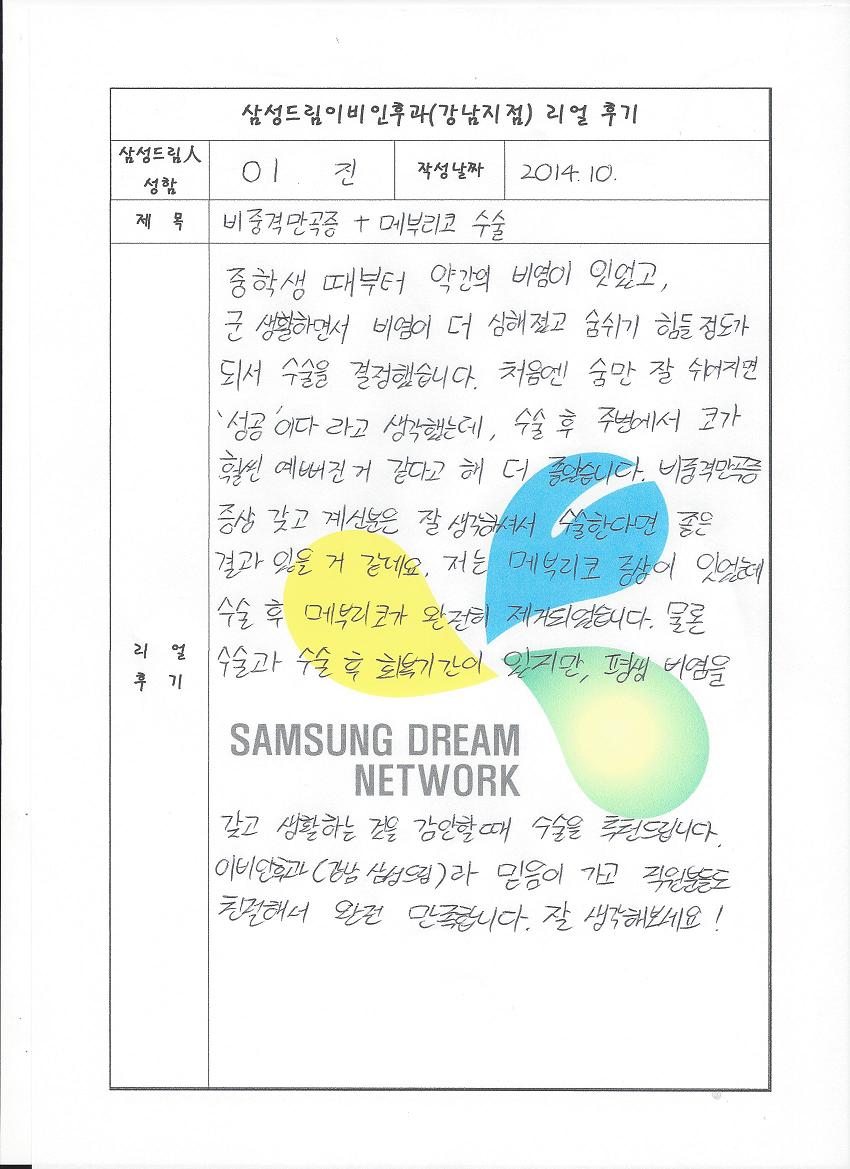 삼성드림이비인후과(강남지점) 리얼 후기
삼성드림人 성함
이 진
작성날짜
2014. 10.
제 목
비중격만곡증 + 메부리코 수술
리 얼
후 기
중학생 때부터 약간의 비염이 잇었고,
군 생활하면서 비염이 더 심해졌고 숨쉬기 힘들 정도가
되서 수술을 결정했습니다. 처음엔 숨만 잘 쉬어지면
'성공'이다 라고 생각했는데, 수술 후 주변에서 코가
훨씬 예뻐진 거 같다고 해 더 좋았습니다. 비중격만곡증
증상 갖고 계신분은 잘 생각하셔서 수술한다면 좋은
결과 있을 거 같네요. 저는 메부리코 증상이 잇었는데
수술 후 메부리코가 완전히 제거되었습니다. 물론
수술과 수술 후 회복기간이 잇지만, 평생 비염을
SAMSUNG DREAM
NETWORK
갖고 생활하는 것을 감안할때 수술을 추천드립니다.
이비인후과(강남 삼성드림)라 믿음이 가고 직원분들도
친절해서 완전 만족합니다. 잘 생각해보세요!